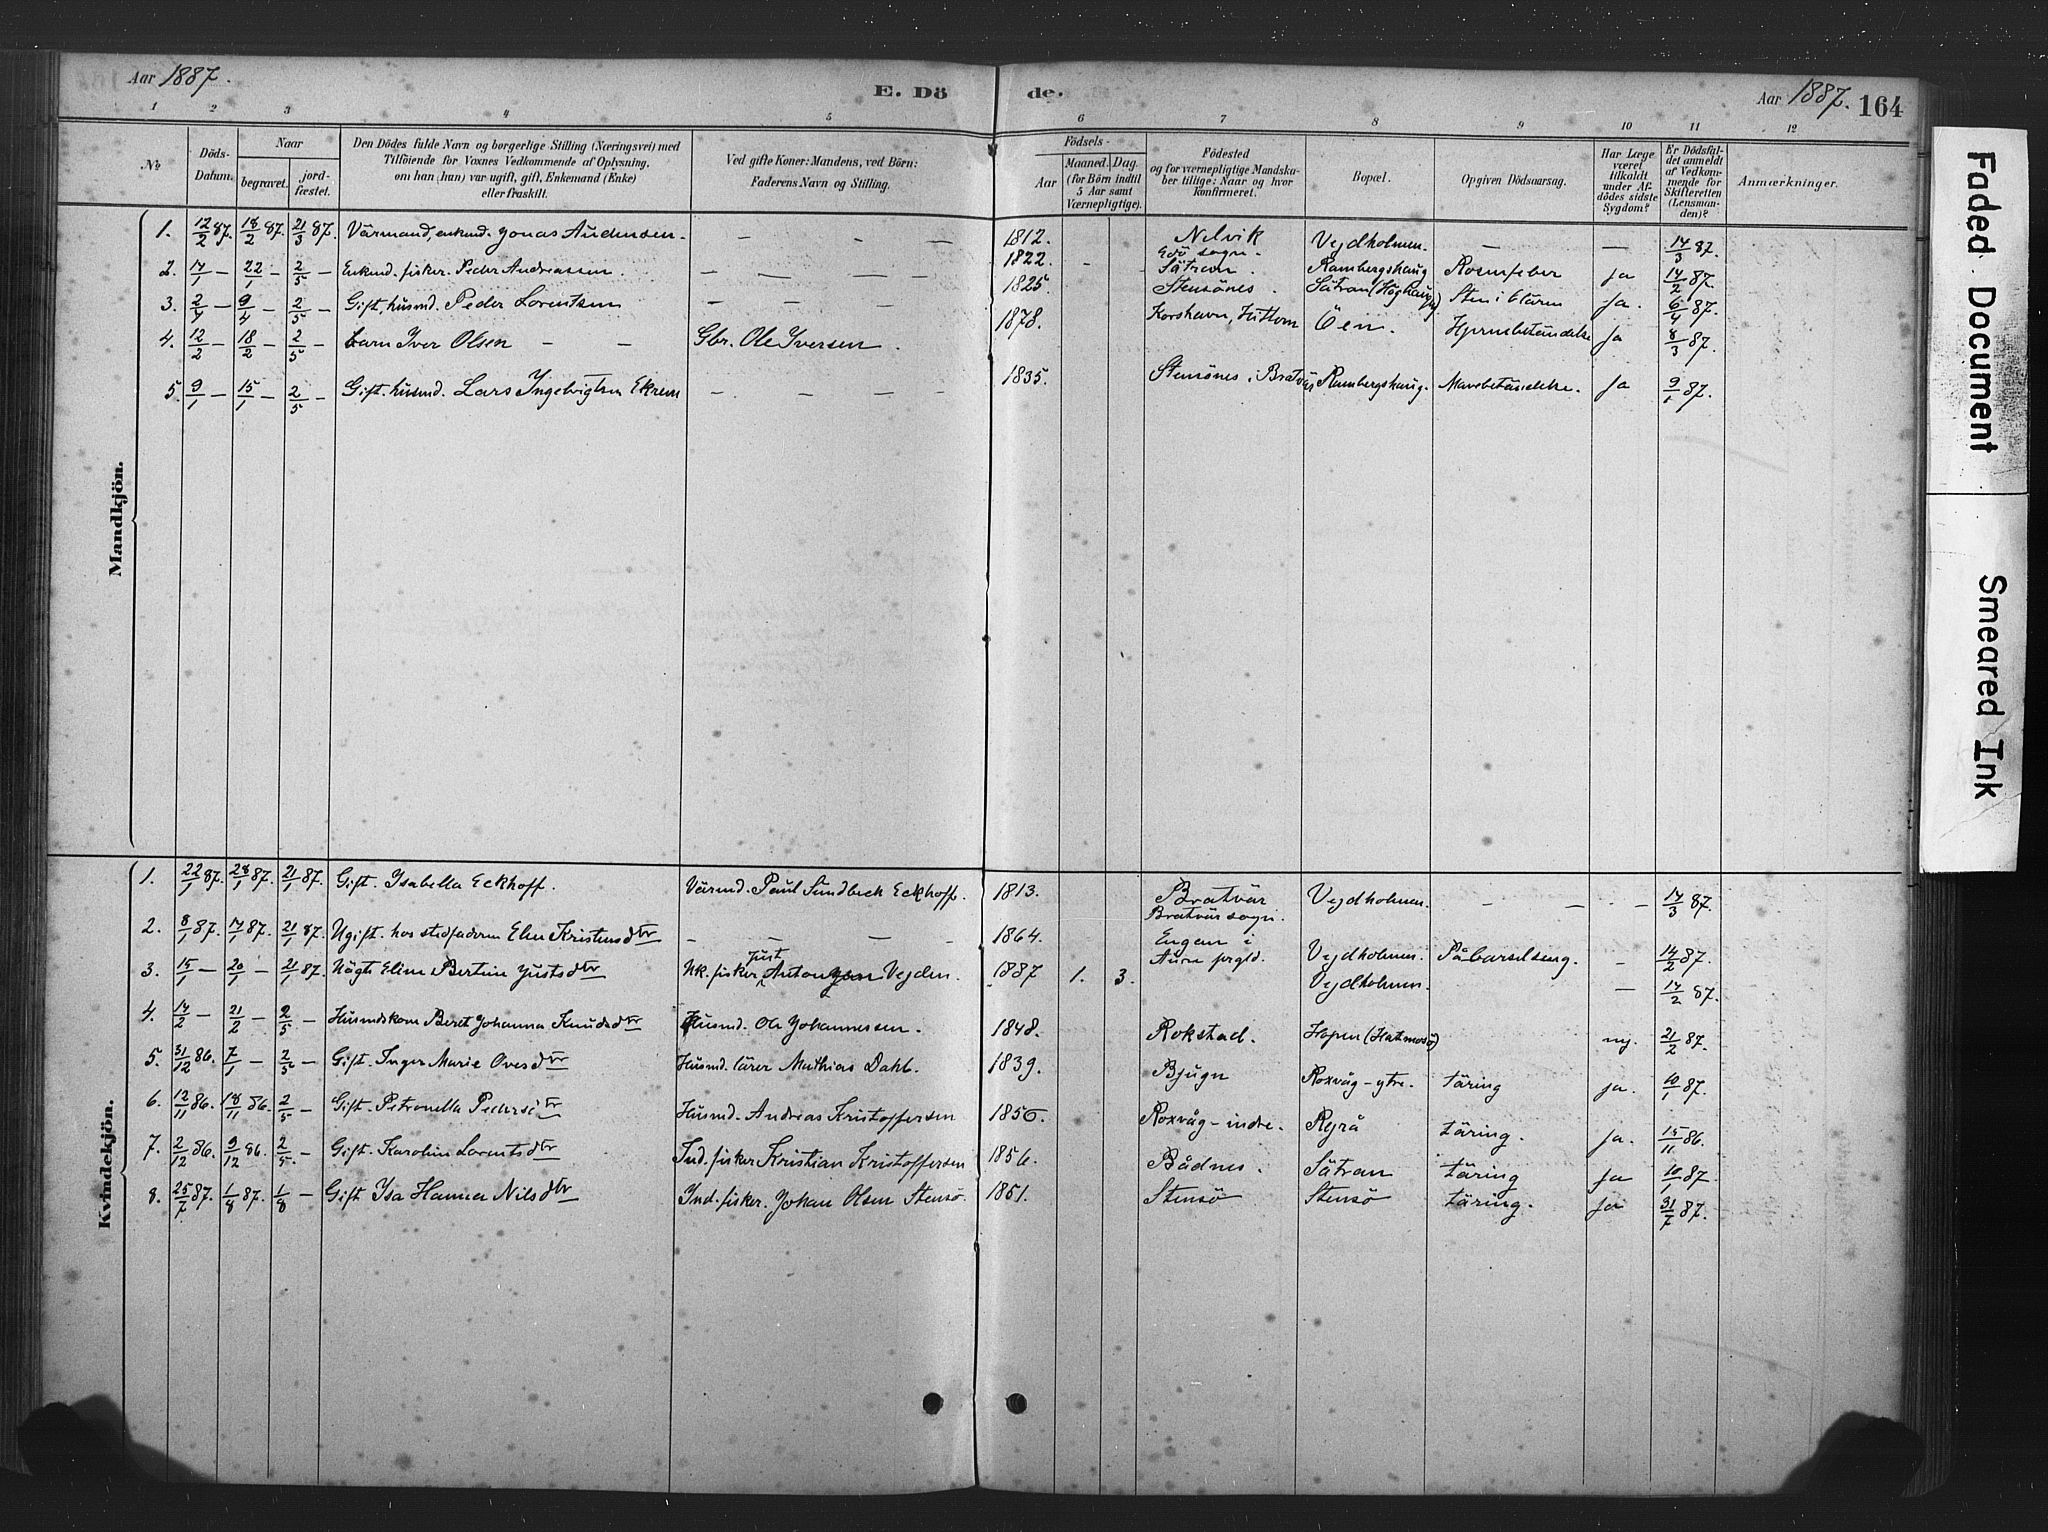 Aar 1887.
E. Döde.
Aar 1887. 164
1 2 3 4 5 6 7 8 9 10 11 12
No.
Döds-Datum.
Naar
begravet.
jord-fæstet.
Den Dödes fulde Navn og borgerlige Stilling (Næringsvei) med
Tilföiende for Voxnes Vedkommende af Oplysning,
om han (hun) var ugift, gift, Enkemand (Enke)
eller fraskilt.
Ved gifte Koner: Mandens, ved Börn:
Faderens Navn og Stilling.
Födsels-
Aar
Maaned. Dag.
(for Börn indtil
5 Aar samt
Værnepligtige).
Födested
og for værnepligtige Mandska-
ber tillige: Naar og hvor
konfirmeret.
Bopæl.
Opgiven Dödsaarsag.
Har Læge
været
tilkaldt
under Af-
dödes sidste
Sygdom?
Er Dödsfal-
det anmeldt
af Vedkom-
mende for
Skifteretten
(Lensman-
den)?
Anmærkninger.
Mandkjön.
1. 12/2 87. 18/2 87. 21/3 87. Värmand, enkemd. Jonas Audensen. — — — 1812. Nelvik Edö sogn. Vejdholmen. — — 17/3 87.
2. 17/1 — 22/1 — 2/5 — Enkemd. fisker. Peder Andreassen. — — — — 1822. - - Sätran. Rambergshaug Rosenfeber ja 14/2 87.
3. 2/4 — 9/4 — 2/5 — Gift, husmd. Peder Lorentsen — — — — 1825. Stensönes. Sätran (Höghaugen) Sten i blären ja. 6/4 87.
4. 12/2 — 18/2 — 2/5 — Barn Iver Olsen — — Gbr. Ole Iversen. 1878. Korshavn, Hittern Öen. Hjernebetändelse ja 8/3 87.
5. 9/1 — 15/1 — 2/5 — Gift. husmd. Lars Ingebrigtsen Ekrem — — — — 1835. Stensönes i Bratvär Rambergshaug. Mavebetändelse. Ja 9/1 87.
Kvindekjön.
1. 22/1 87. 28/1 87. 21/1 87. Gift. Isabella Eckhoff. Värmd. Paul Sundbeck Eckhoff. 1813. Bratvär Bratvär sogn. Vejdholmen. - — - - 17/3 87.
2. 8/1 87. 17/1 87. 21/1 87. Ugift. hos stedfaderen Elen Kristensdtr — — — - 1864. Engan i Aure prgld. Vejdholmen. På barselseng. - 14/2 87.
3. 15/1 — 20/1 — 21/1 87. Uägte Eline Bertine Justsdtr Uk. fisker Just Anton Vejden. 1887 1. 3. Vejdholmen. — 17/2 87.
4. 17/2 — 21/2 — 2/5 — Husmdskone Beret Johanna Knudsdtr Husmd. Ole Johannessen. 1848. Rokstad. Hopen (Hatmosö) nej. 21/2 87.
5. 31/12 86. 7/1 — 2/5 — Gift. Inger Marie Ovesdtr Husmd. lärer Mathias Dahl. 1839. Bjugn Roxvåg-ytre. täring ja. 10/1 87.
6. 12/11 86. 18/11 86. 2/5 — Gift. Petronella Pedersdtr Husmd. Andreas Kristoffersen 1856. Roxvåg-indre. Rejrå täring. ja. 15/11 86.
7. 2/12 86. 9/12 86. 2/5. — Gift. Karoline Lorentsdtr Ind. fisker Kristian Kristoffersen 1856. Bådnes. Sätran täring ja 10/1 87.
8. 25/7 87. 1/8 87. 1/8 — Gift. Isa Hanna Nilsdtr Ind. fisker. Johan Olsen Stensö. 1851. Stensö Stensö täring. ja 31/7 87.
Faded Document
Smeared Ink